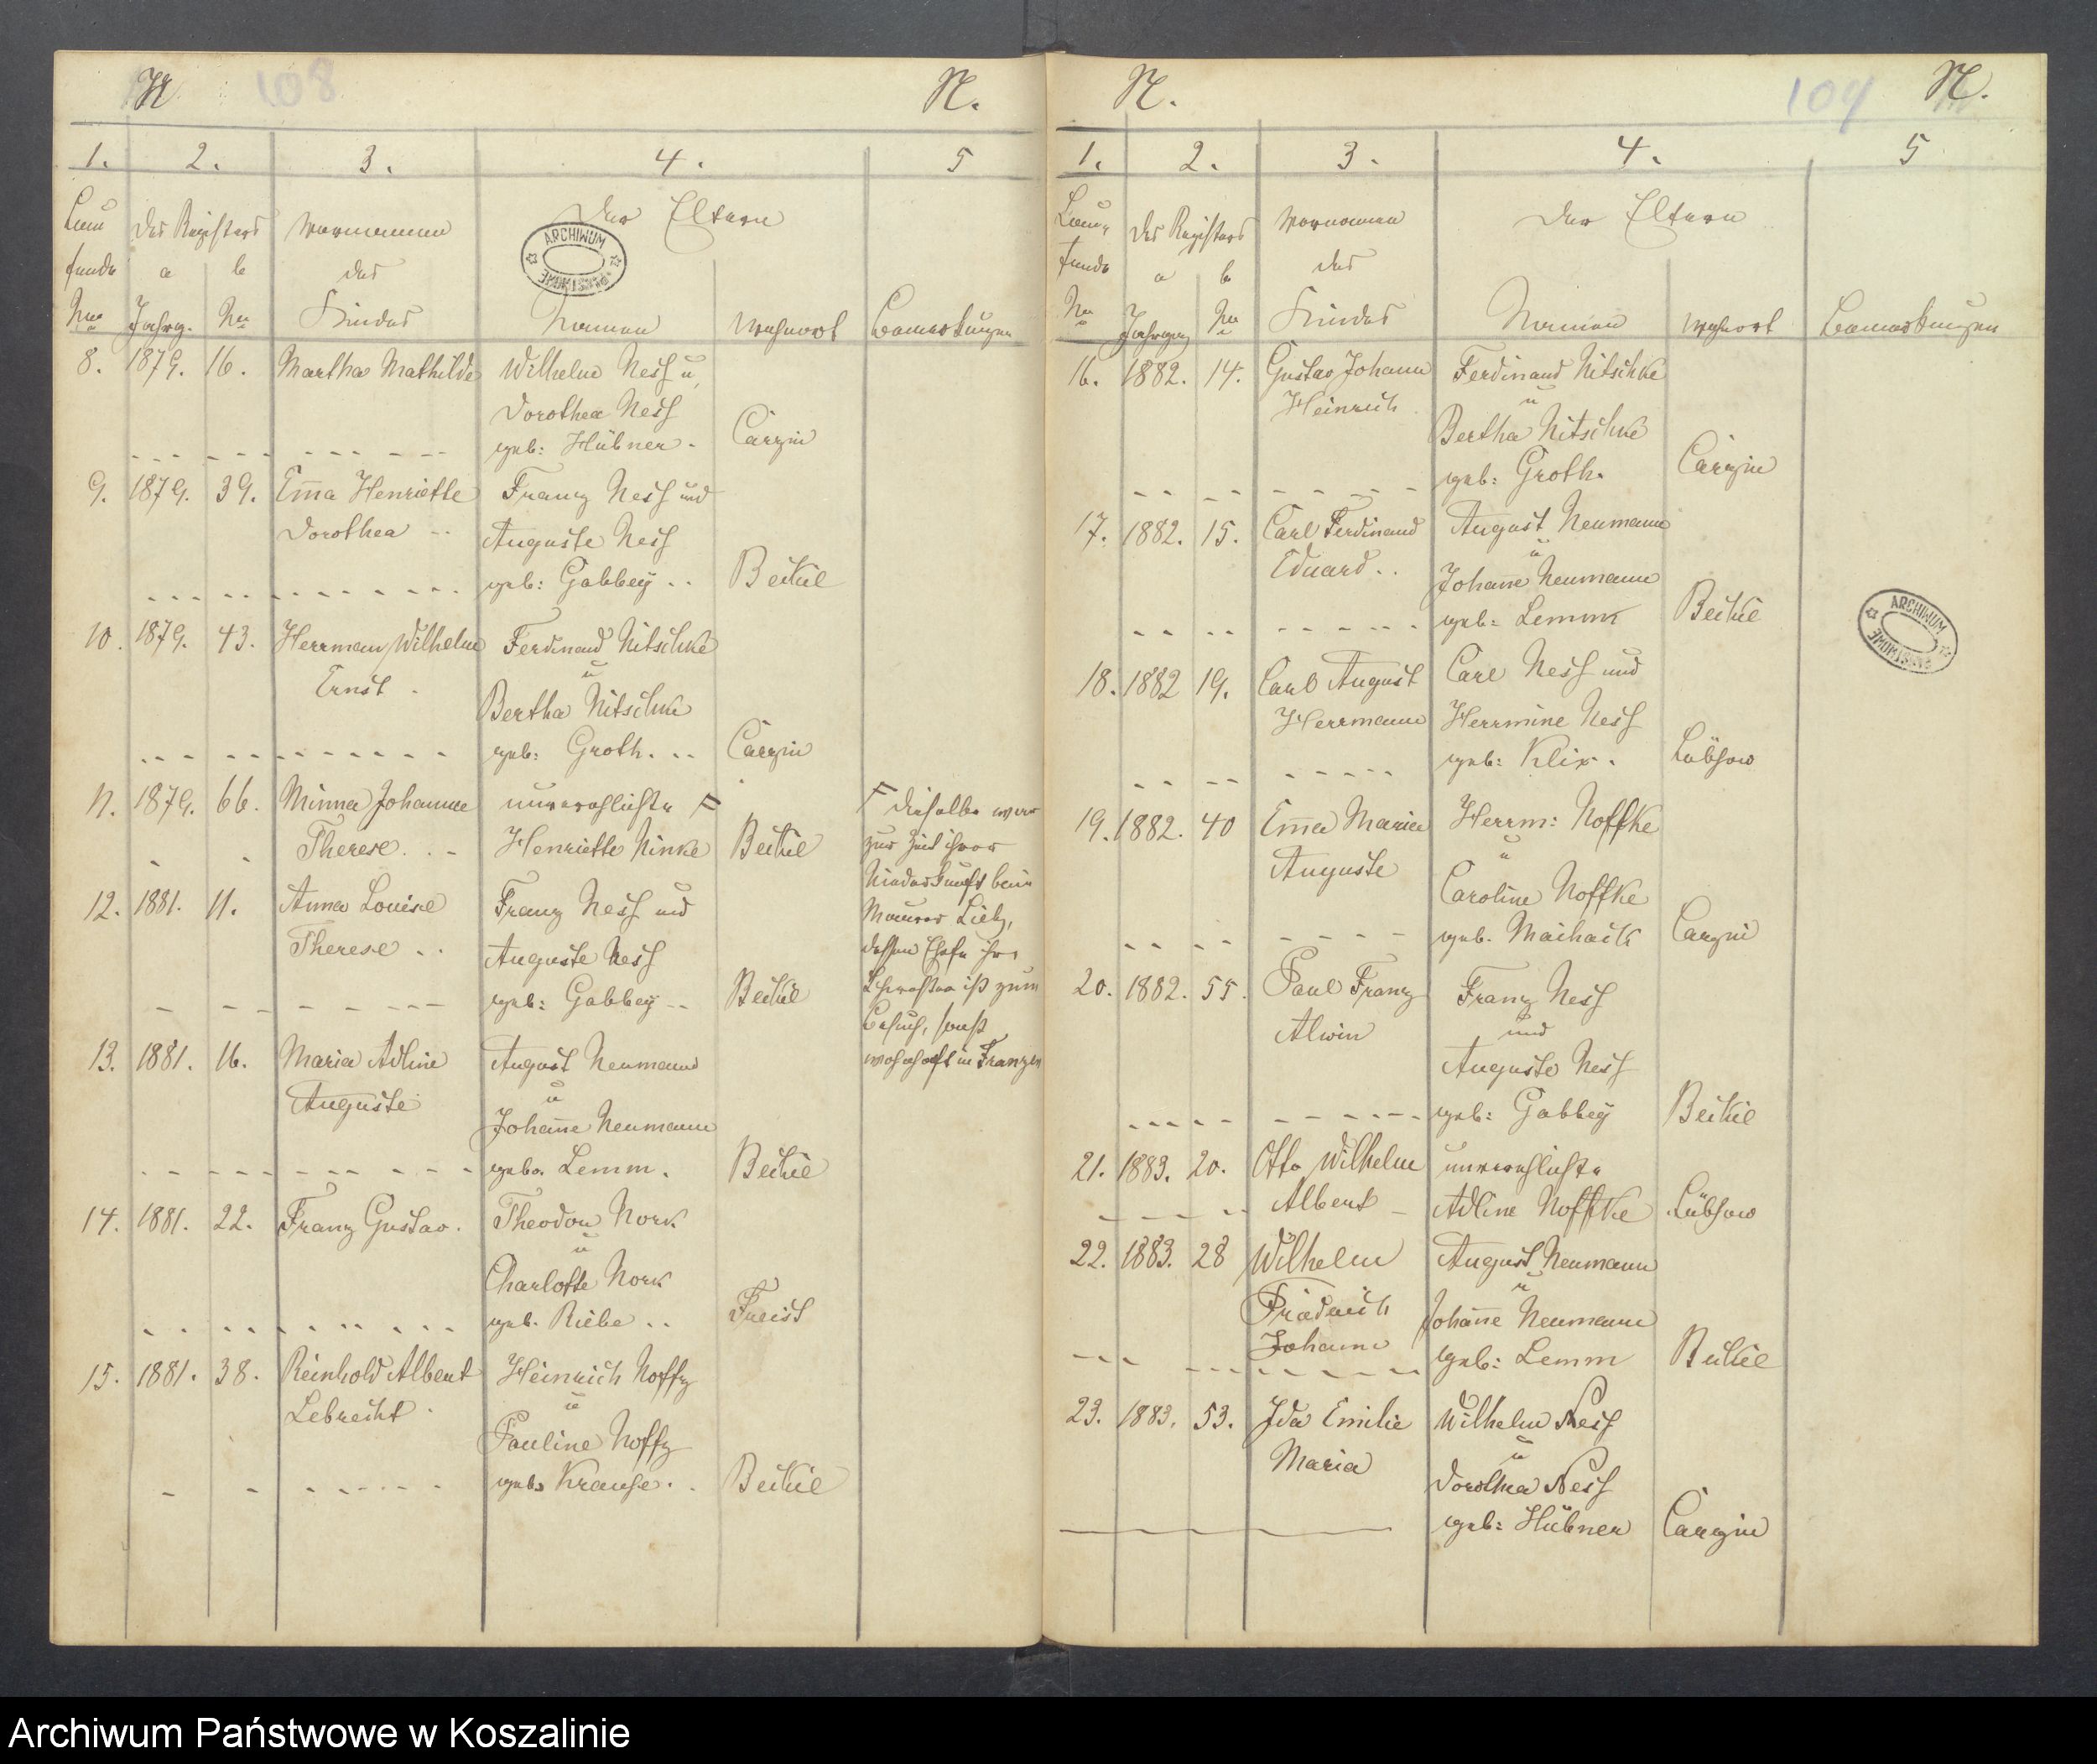 N. 108 N.
1. 2. 3. 4. 5
Lau des Registers Vornamen Der Eltern
fende a b des
No Jahrg. No Kindes Namen Wohnort Bemerkungen
8. 1879. 16. Martha Mathilde Wilhelm Ness u
Dorothea Ness
geb: Hübner. Carzin
9. 1879. 39. Em̄a Henriette Franz Ness und
Dorothea Auguste Ness
geb: Gabbey Beckel
10. 1879. 43. Herrman Wilhelm Ferdinand Nitschke
Ernst. u
Bertha Nitschke
geb: Groth. Carzin
11. 1879. 66. Minna Johanne unverehlichte F
Therese. Henriette Ninke Beckel
F dieselbe war
zur Zeit ihrer
Niederkunft beim
Maurer Lietz,
dessen Ehefr ihre
Schwester ist zum
Besuch, sonst
wohnhaft in Franzen
12. 1881. 11. Anna Louise Franz Ness und
Therese Auguste Ness
geb: Gabbey Beckel
13. 1881. 16. Maria Adline August Neumann
Auguste u
Johan̄e Neumann
geb. Lemm. Beckel
14. 1881. 22. Franz Gustav. Theodor Nork
u
Charlotte Nork
geb. Riebe Freist
15. 1881. 38. Reinhold Albert Heinrich Noffz
Lebrecht. u
Pauline Noffz
geb. Krause. Beckel
N. 109 N.
1. 2. 3. 4. 5
Lau- des Registers Vornamen Der Eltern
fende a b des
No Jahrgang No Kindes Namen Wohnort Bemerkungen
16. 1882. 14. Gustav Johann Ferdinand Nitschke
Heinrich u
Bertha Nitschke
geb: Groth. Carzin
17. 1882. 15. Carl Ferdinand August Neumann
Eduard.. u
Johan̄e Neumann
geb: Lemm Beckel
18. 1882 19. Carl August Carl Ness und
Herrmann Herrmine Ness
geb: Klix. Lübzow
19. 1882. 40 Em̄a Maria Herrm: Noffke
Auguste u
Caroline Noffke
geb. Machack Carzin
20. 1882. 55. Paul Franz Franz Ness
Alwin und
Auguste Ness
geb: Gabbey Beckel
21. 1883. 20. Otto Wilhelm unverehlichte
Albert Adline Noffke Lübzow
22. 1883. 28 Wilhelm August Neumann
Friedrich u
Johann Johan̄e Neumann
geb: Lemm Beckel
23. 1883. 53. Ida Emilie Wilhelm Ness
Maria u
Dorothea Ness
geb: Hübner Carzin
ARCHIWUM
ARCHIWUM
Archiwum Państwowe w Koszalinie